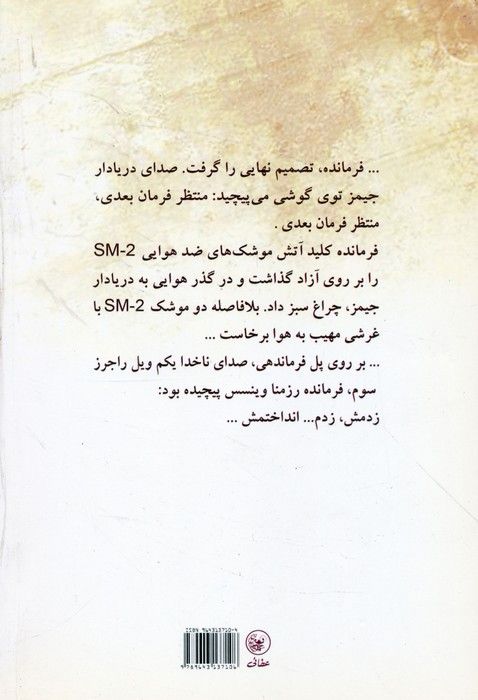 ... فرمانده، تصمیم نهایی را گرفت. صدای دریادار
جیمز توی گوشی می‌پیچید: منتظر فرمان بعدی،
منتظر فرمان بعدی .
فرمانده کلید آتش موشک‌های ضد هوایی SM-2
را بر روی آزاد گذاشت و در گذر هوایی به دریادار
جیمز، چراغ سبز داد. بلافاصله دو موشک SM-2 با
غرشی مهیب به هوا برخاست ...
... بر روی پل فرماندهی، صدای ناخدا یکم ویل راجرز
سوم، فرمانده رزمنا وینسس پیچیده بود:
زدمش، زدم... انداختمش ...
ISBN 964313710-9
9 789643 137106
عطائی